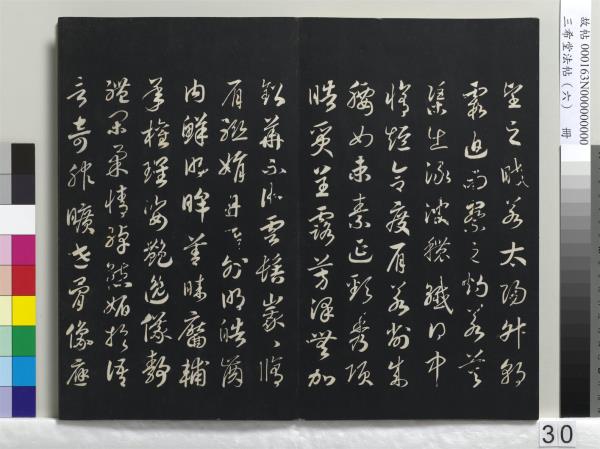 故帖 000163N000000000
三希堂法帖(六) 冊
望之皎若太陽升朝
霞迫而察之灼若芙
蕖出淥波穠纖得中
脩短合度肩若削成
腰如束素延頸秀項
皓質呈露芳澤無加
鉛華不御雲髻峩〻脩
眉聯娟丹脣外朗皓齒
內鮮明眸善睞靨輔
承權瓌姿艷逸儀靜
體閑柔情綽態媚於語
言奇服曠世骨像應
30